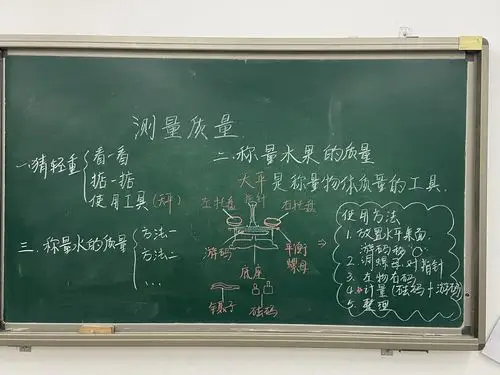 测量质量
一.猜轻重
看一看
掂一掂
使用工具(天平)
二.称量水果的质量
天平是称量物体质量的工具.
左托盘
指针
右托盘
游码
平衡
螺母
底座
镊子
砝码
三.称量水的质量
方法一
方法二
...
使用方法
1. 放置水平桌面.
游码移"0"
2. 调螺母对指针
3. 左物右码
4. 计量(砝码+游码)
5. 整理